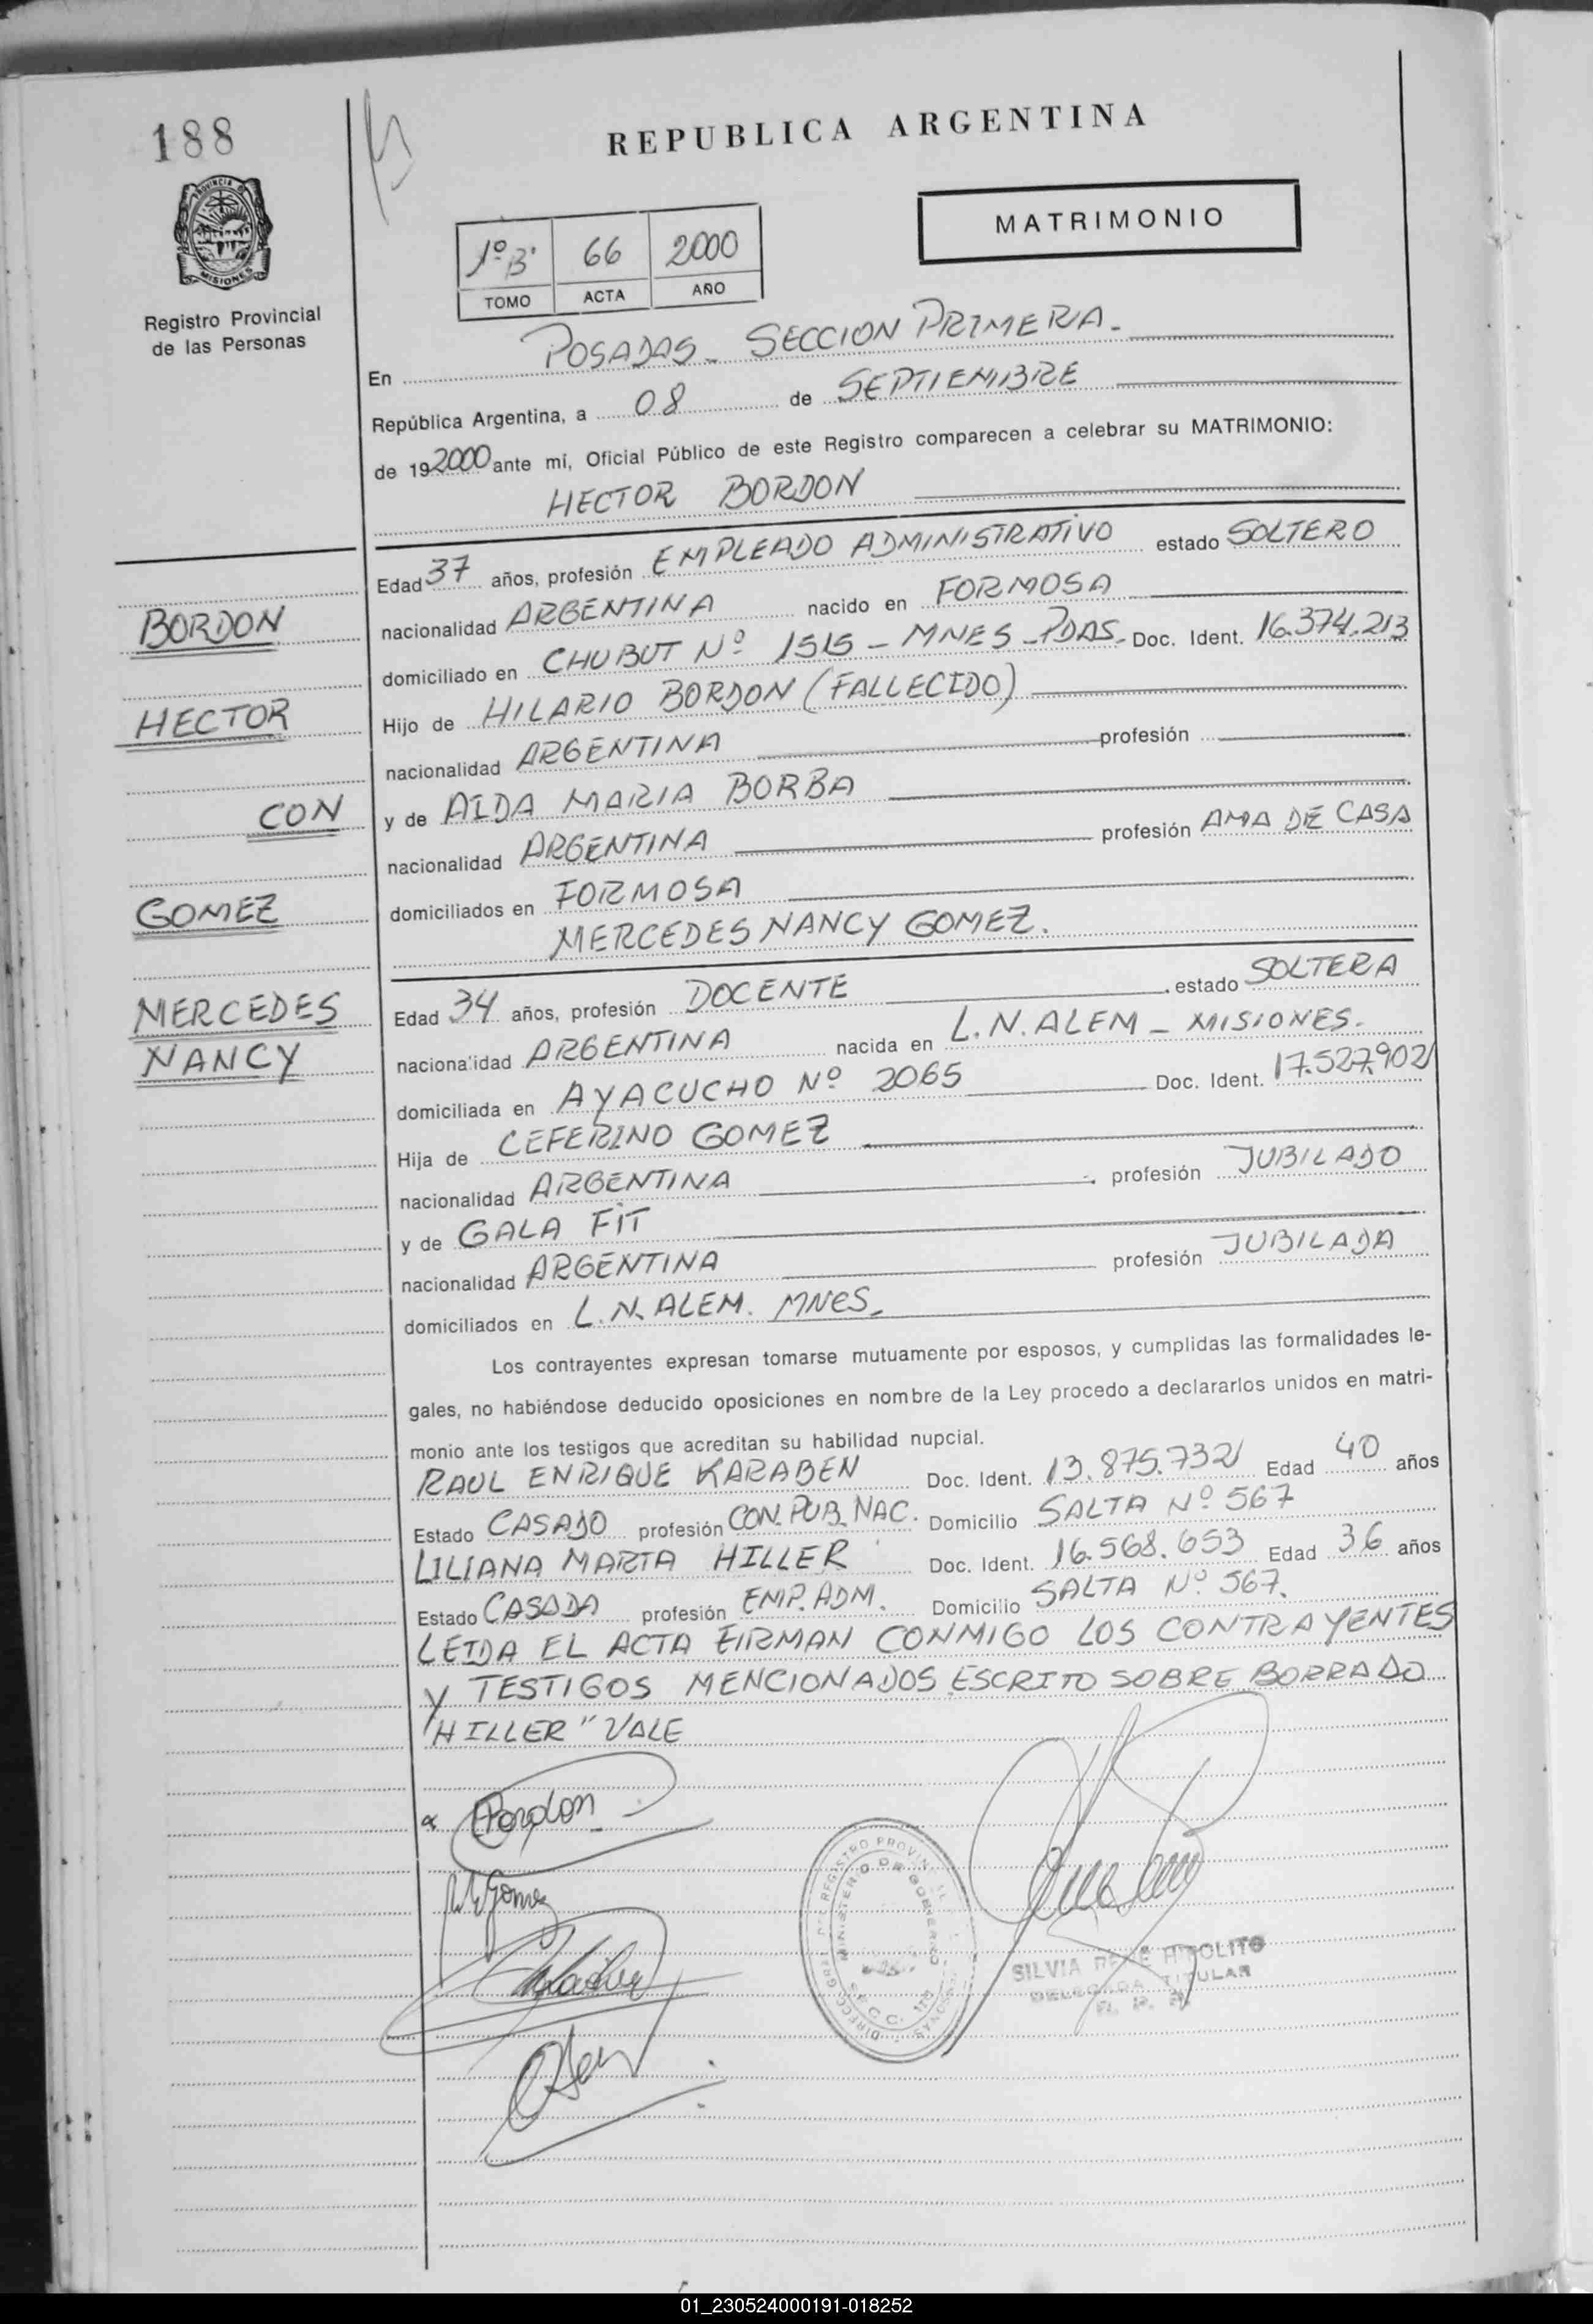 188
REPUBLICA ARGENTINA
PROVINCIA D
MISIONES
Registro Provincial
de las Personas
1º B' 66 2000
TOMO ACTA AÑO
MATRIMONIO
En POSADAS - SECCION PRIMERA.-
República Argentina, a 08 de SEPTIEMBRE
de 192000 ante mí, Oficial Público de este Registro comparecen a celebrar su MATRIMONIO:
HECTOR BORDON
Edad 37 años, profesión EMPLEADO ADMINISTRATIVO estado SOLTERO
BORDON
nacionalidad ARGENTINA nacido en FORMOSA
domiciliado en CHUBUT Nº 1515 - MNES - PDAS - Doc. Ident. 16.374.213
HECTOR
Hijo de HILARIO BORDON (FALLECIDO)
nacionalidad ARGENTINA profesión
CON
y de AIDA MARIA BORBA
nacionalidad ARGENTINA profesión AMA DE CASA
GOMEZ
domiciliados en FORMOSA
MERCEDES NANCY GOMEZ.
MERCEDES
Edad 34 años, profesión DOCENTE estado SOLTERA
NANCY
nacionalidad ARGENTINA nacida en L.N. ALEM - MISIONES.
domiciliada en AYACUCHO Nº 2065 Doc. Ident. 17.527.902
Hija de CEFERINO GOMEZ
nacionalidad ARGENTINA profesión JUBILADO
y de GALA FIT
nacionalidad ARGENTINA profesión JUBILADA
domiciliados en L.N. ALEM. MNES.
Los contrayentes expresan tomarse mutuamente por esposos, y cumplidas las formalidades le-
gales, no habiéndose deducido oposiciones en nombre de la Ley procedo a declararlos unidos en matri-
monio ante los testigos que acreditan su habilidad nupcial.
RAUL ENRIQUE KARABEN Doc. Ident. 13.875.732 Edad 40 años
Estado CASADO profesión CON. PUB. NAC. Domicilio SALTA Nº 567
LILIANA MARTA HILLER Doc. Ident. 16.568.653 Edad 36 años
Estado CASADA profesión EMP. ADM. Domicilio SALTA Nº 567.
LEIDA EL ACTA FIRMAN CONMIGO LOS CONTRAYENTES
Y TESTIGOS MENCIONADOS ESCRITO SOBRE BORRADO
"HILLER" VALE
Bordon
Gomez
MINISTERIO DE GOBIERNO
SILVIA HIPOLITO
DELEGADA TITULAR
01_230524000191-018252